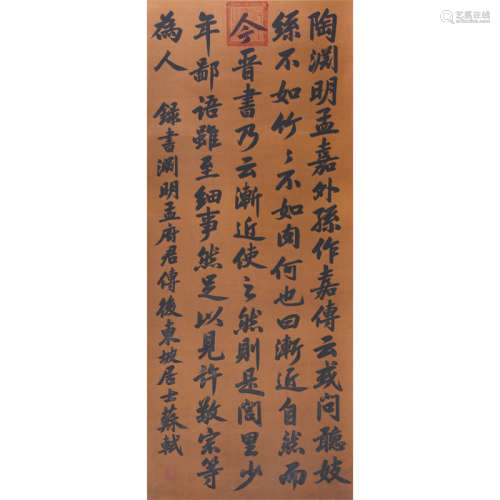 陶淵明孟嘉外孫作嘉傳云或問聽妓
絲不如竹〻不如肉何也曰漸近自然而
今晉書乃云漸近使之然則是閭里少
年鄙语雖至细事然足以見許敬宗等
為人 録書淵明孟府君傳後東坡居士蘇軾